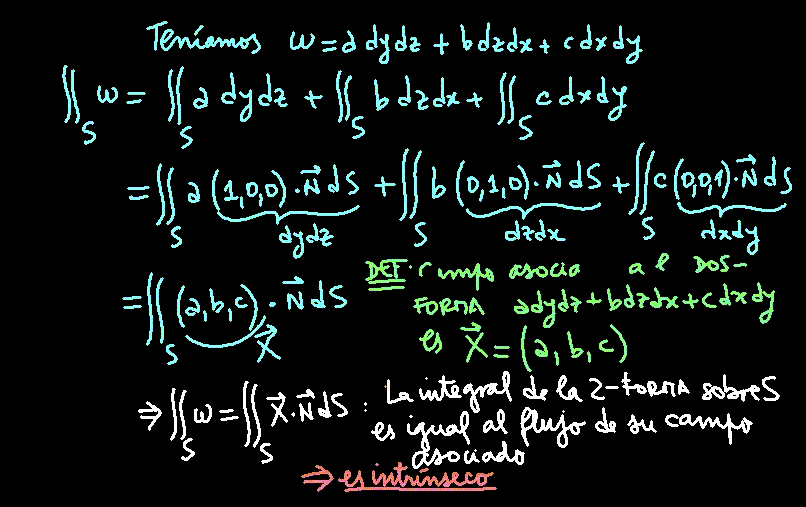 Teníamos w = a dydz + b dzdx + c dxdy
∬_S w = ∬_S a dydz + ∬_S b dzdx + ∬_S c dxdy
= ∬_S a (1,0,0)·N⃗ dS + ∬_S b (0,1,0)·N⃗ dS + ∬_S c (0,0,1)·N⃗ dS
dydz dzdx dxdy
= ∬_S (a,b,c)·N⃗ dS
X⃗
DEF: C mpo asocia a l DOS-
FORMA adydz + bdzdx + cdxdy
es X⃗ = (a, b, c)
⇒ ∬_S w = ∬_S X⃗·N⃗ dS : La integral de la 2-FORMA sobre S
es igual al flujo de su campo
asociado
⇒ es intrínseco